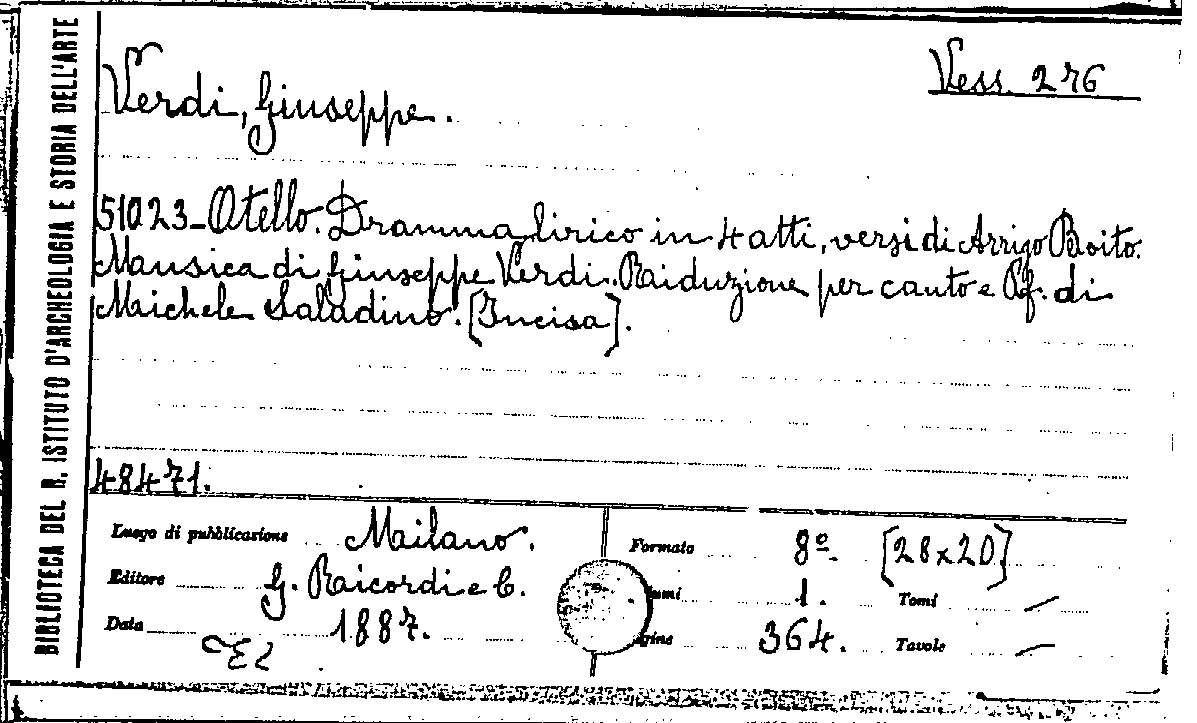 BIBLIOTECA DEL R. ISTITUTO D'ARCHEOLOGIA E STORIA DELL'ARTE
Vess. 276
Verdi, Giuseppe.
51023_Otello. Dramma lirico in 4 atti, versi di Arrigo Boito.
Musica di Giuseppe Verdi. Riduzione per canto e Pf. di
Michele Saladino. [Incisa].
48471.
Luogo di pubblicazione Milano. Formato 8º. [28x20]
Editore G. Ricordi e C. umi 1. Tomi /
Data 1887. gine 364. Tavole /